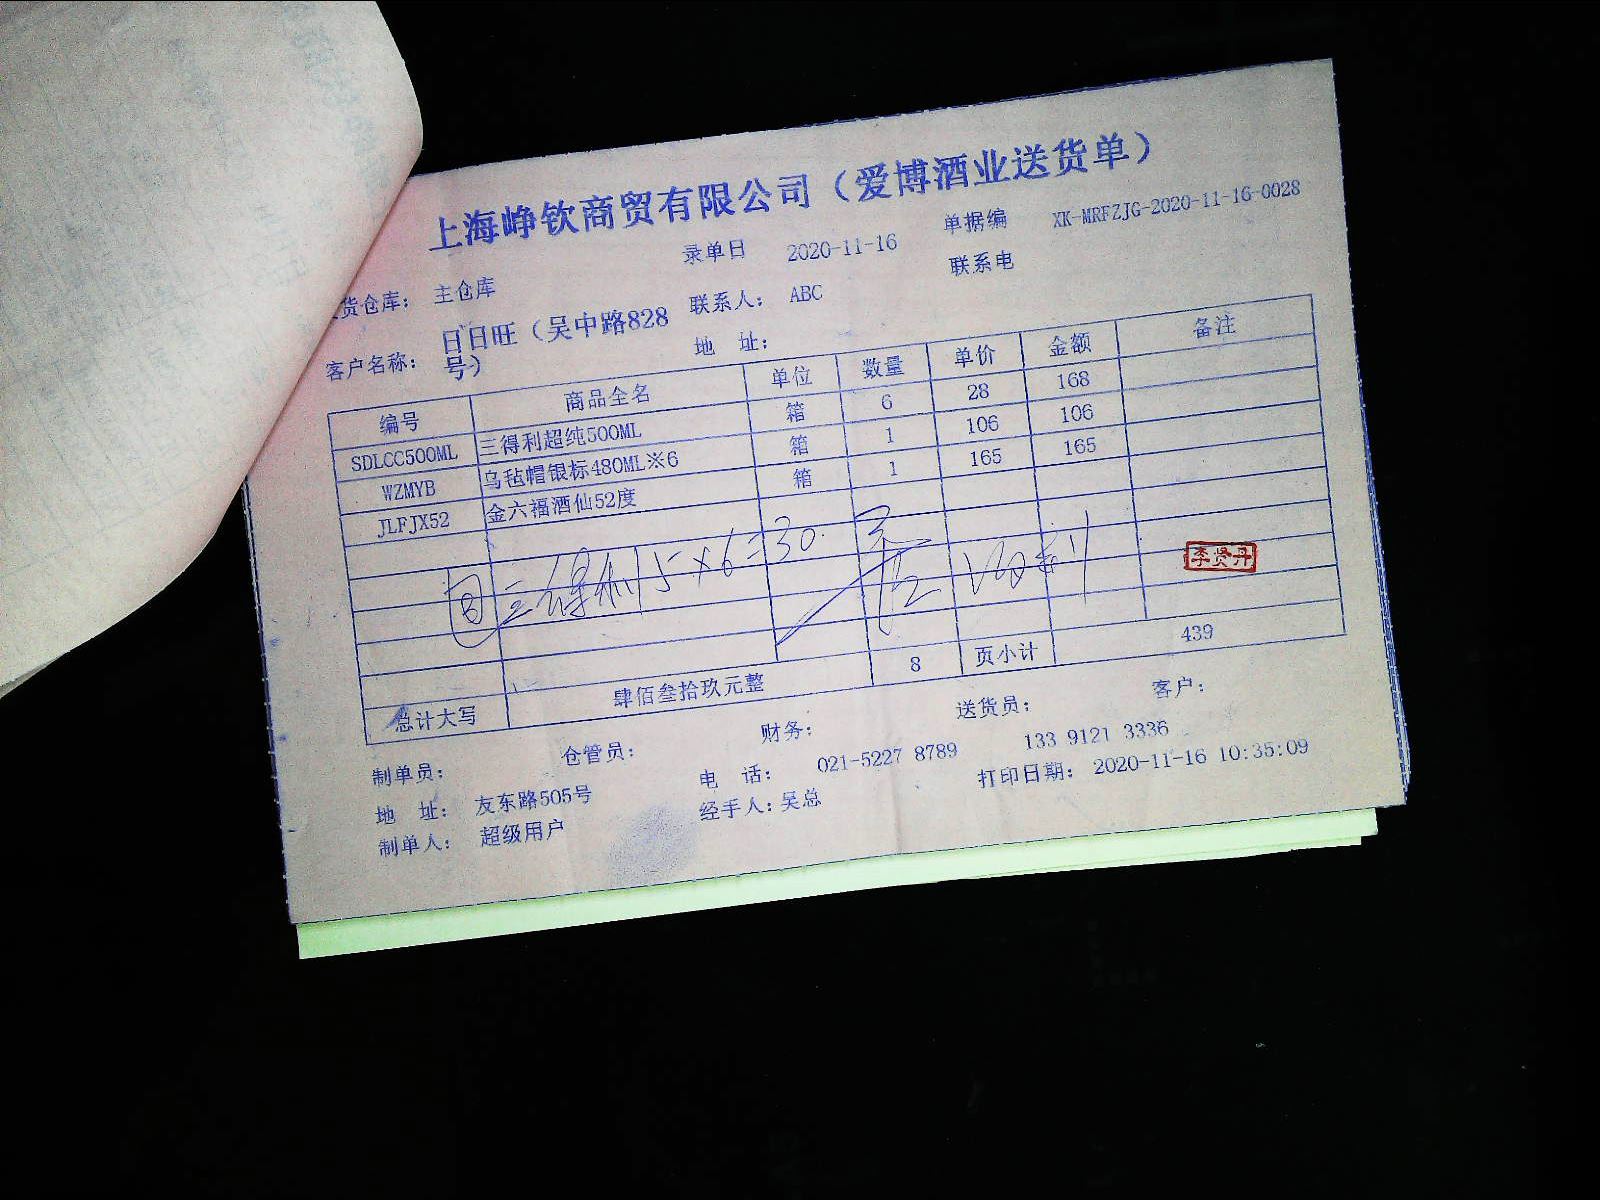 上海峥钦商贸有限公司（爱博酒业送货单）
录单日 2020-11-16 单据编 XK-MRFZJG-2020-11-16-0028
货仓库： 主仓库 联系人： ABC 联系电
客户名称： 日日旺（吴中路828号） 地 址：
编号 商品全名 单位 数量 单价 金额 备注
SDLCC500ML 三得利超纯500ML 箱 6 28 168
WZMYB 乌毡帽银标480ML※6 箱 1 106 106
JLFJX52 金六福酒仙52度 箱 1 165 165
回 三得利 5×6=30.
李贤丹
总计大写 肆佰叁拾玖元整 8 页小计 439
制单员： 仓管员： 财务： 送货员： 客户：
地 址： 友东路505号 电 话： 021-5227 8789 133 9121 3336
制单人： 超级用户 经手人：吴总 打印日期： 2020-11-16 10:35:09